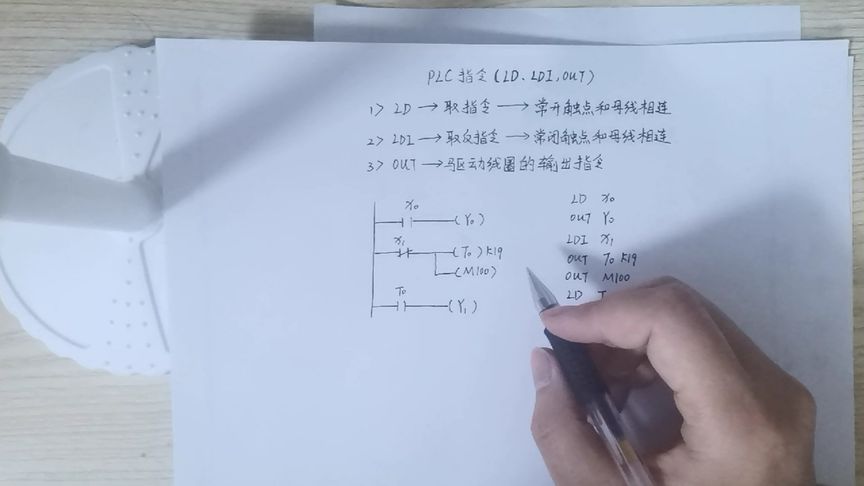 PLC 指令(LD、LDI,OUT)
1> LD → 取指令 → 常开触点和母线相连
2> LDI → 取反指令 → 常闭触点和母线相连
3> OUT → 驱动线圈的输出指令
X0
(Y0)
X1
(T0) K19
(M100)
T0
(Y1)
LD X0
OUT Y0
LDI X1
OUT T0 K19
OUT M100
LD T